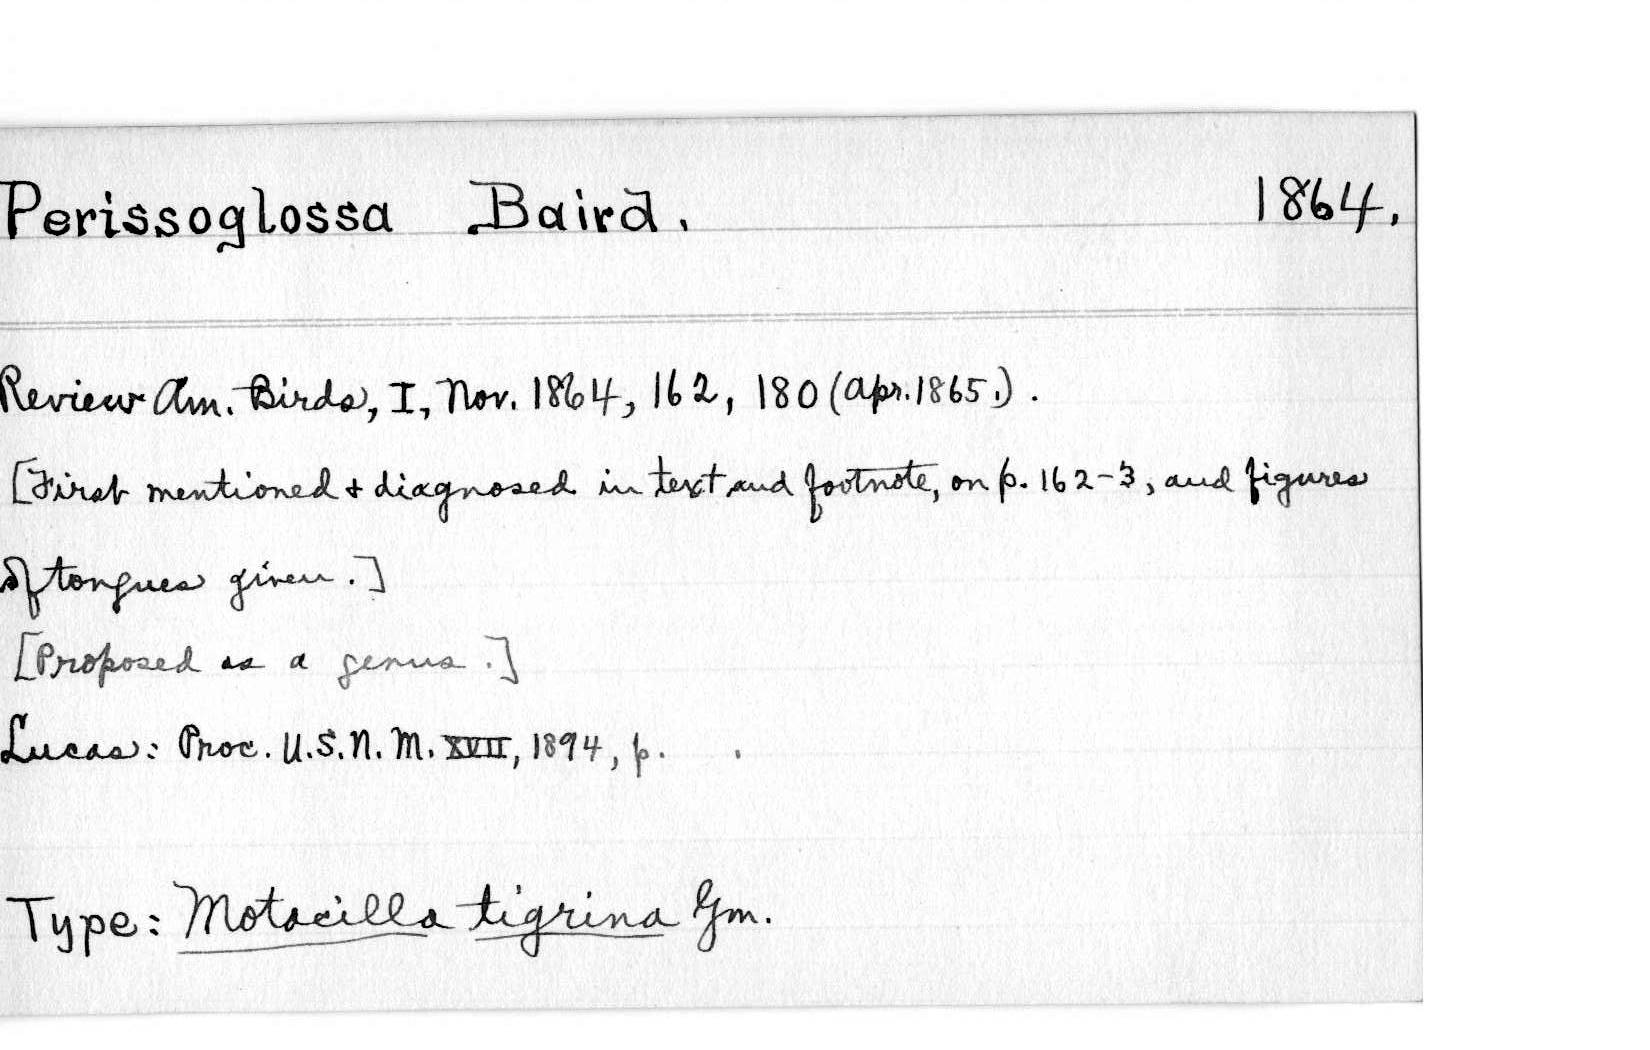 Perissoglossa Baird. 1864.
Review Am. Birds, I, Nov. 1864, 162, 180 (Apr. 1865.).
[First mentioned & diagnosed in text and footnote, on p. 162-3, and figures
of tongues given.]
[Proposed as a genus.]
Lucas: Proc. U.S.N.M. XVII, 1894, p. .
Type: Motacilla tigrina Gm.